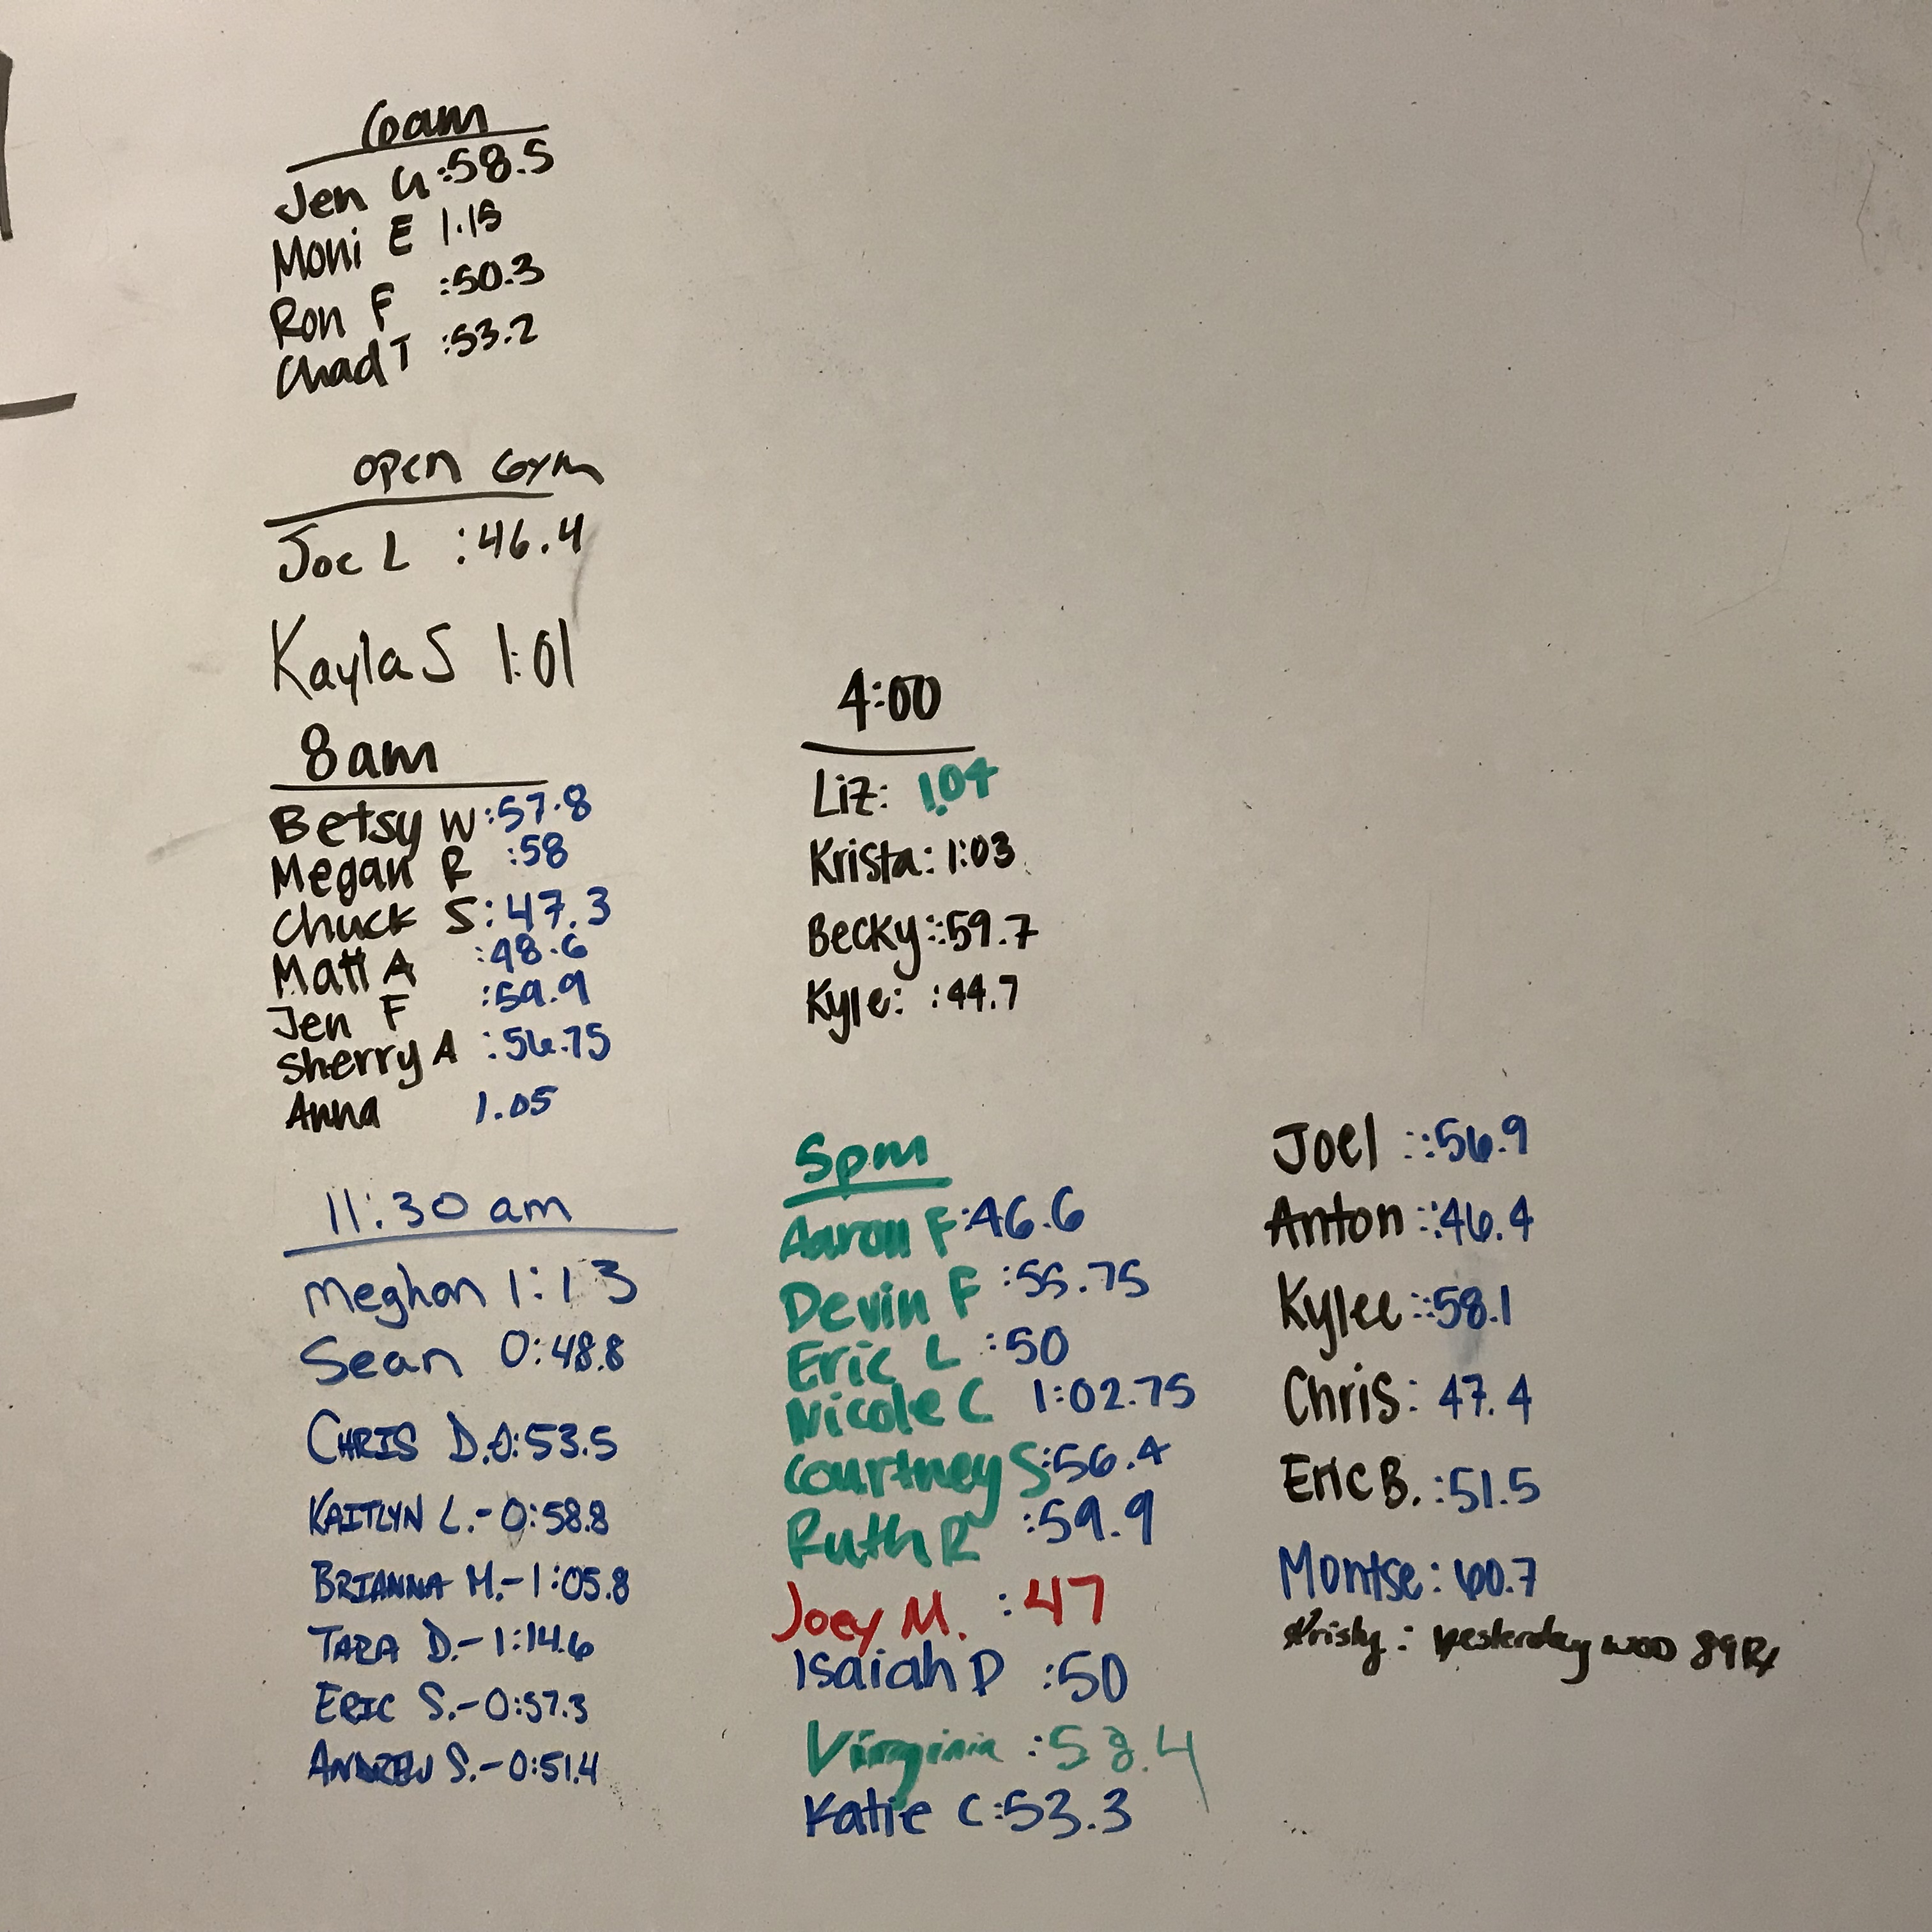 6am
Jen G :58.5
Moni E 1.15
Ron F :50.3
Chad T :53.2
open Gym
Joe L :46.4
Kayla S 1:01
8am
Betsy W :57.8
Megan R :58
Chuck S :47.3
Matt A :48.6
Jen F :59.9
Sherry A :56.75
Anna 1.05
11:30 am
Meghan 1:13
Sean 0:48.8
CHRIS D. 0:53.5
KAITLYN L.- 0:58.8
BRIANNA M.- 1:05.8
TARA D.- 1:14.6
ERIC S.- 0:57.3
ANDREW S.- 0:51.4
4:00
Liz: 1:04
Krista: 1:03
Becky: :59.7
Kyle: :44.7
5pm
Aaron F :46.6
Devin F :55.75
Eric L :50
Nicole C 1:02.75
Courtney S :56.4
Ruth R :59.9
Joey M. :47
Isaiah D :50
Virginia :53.4
Katie C :53.3
Joel ::56.9
Anton ::46.4
Kylee ::58.1
Chris: 47.4
Eric B. :51.5
Montse: 60.7
Kristy: yesterday WOD 89 Rx